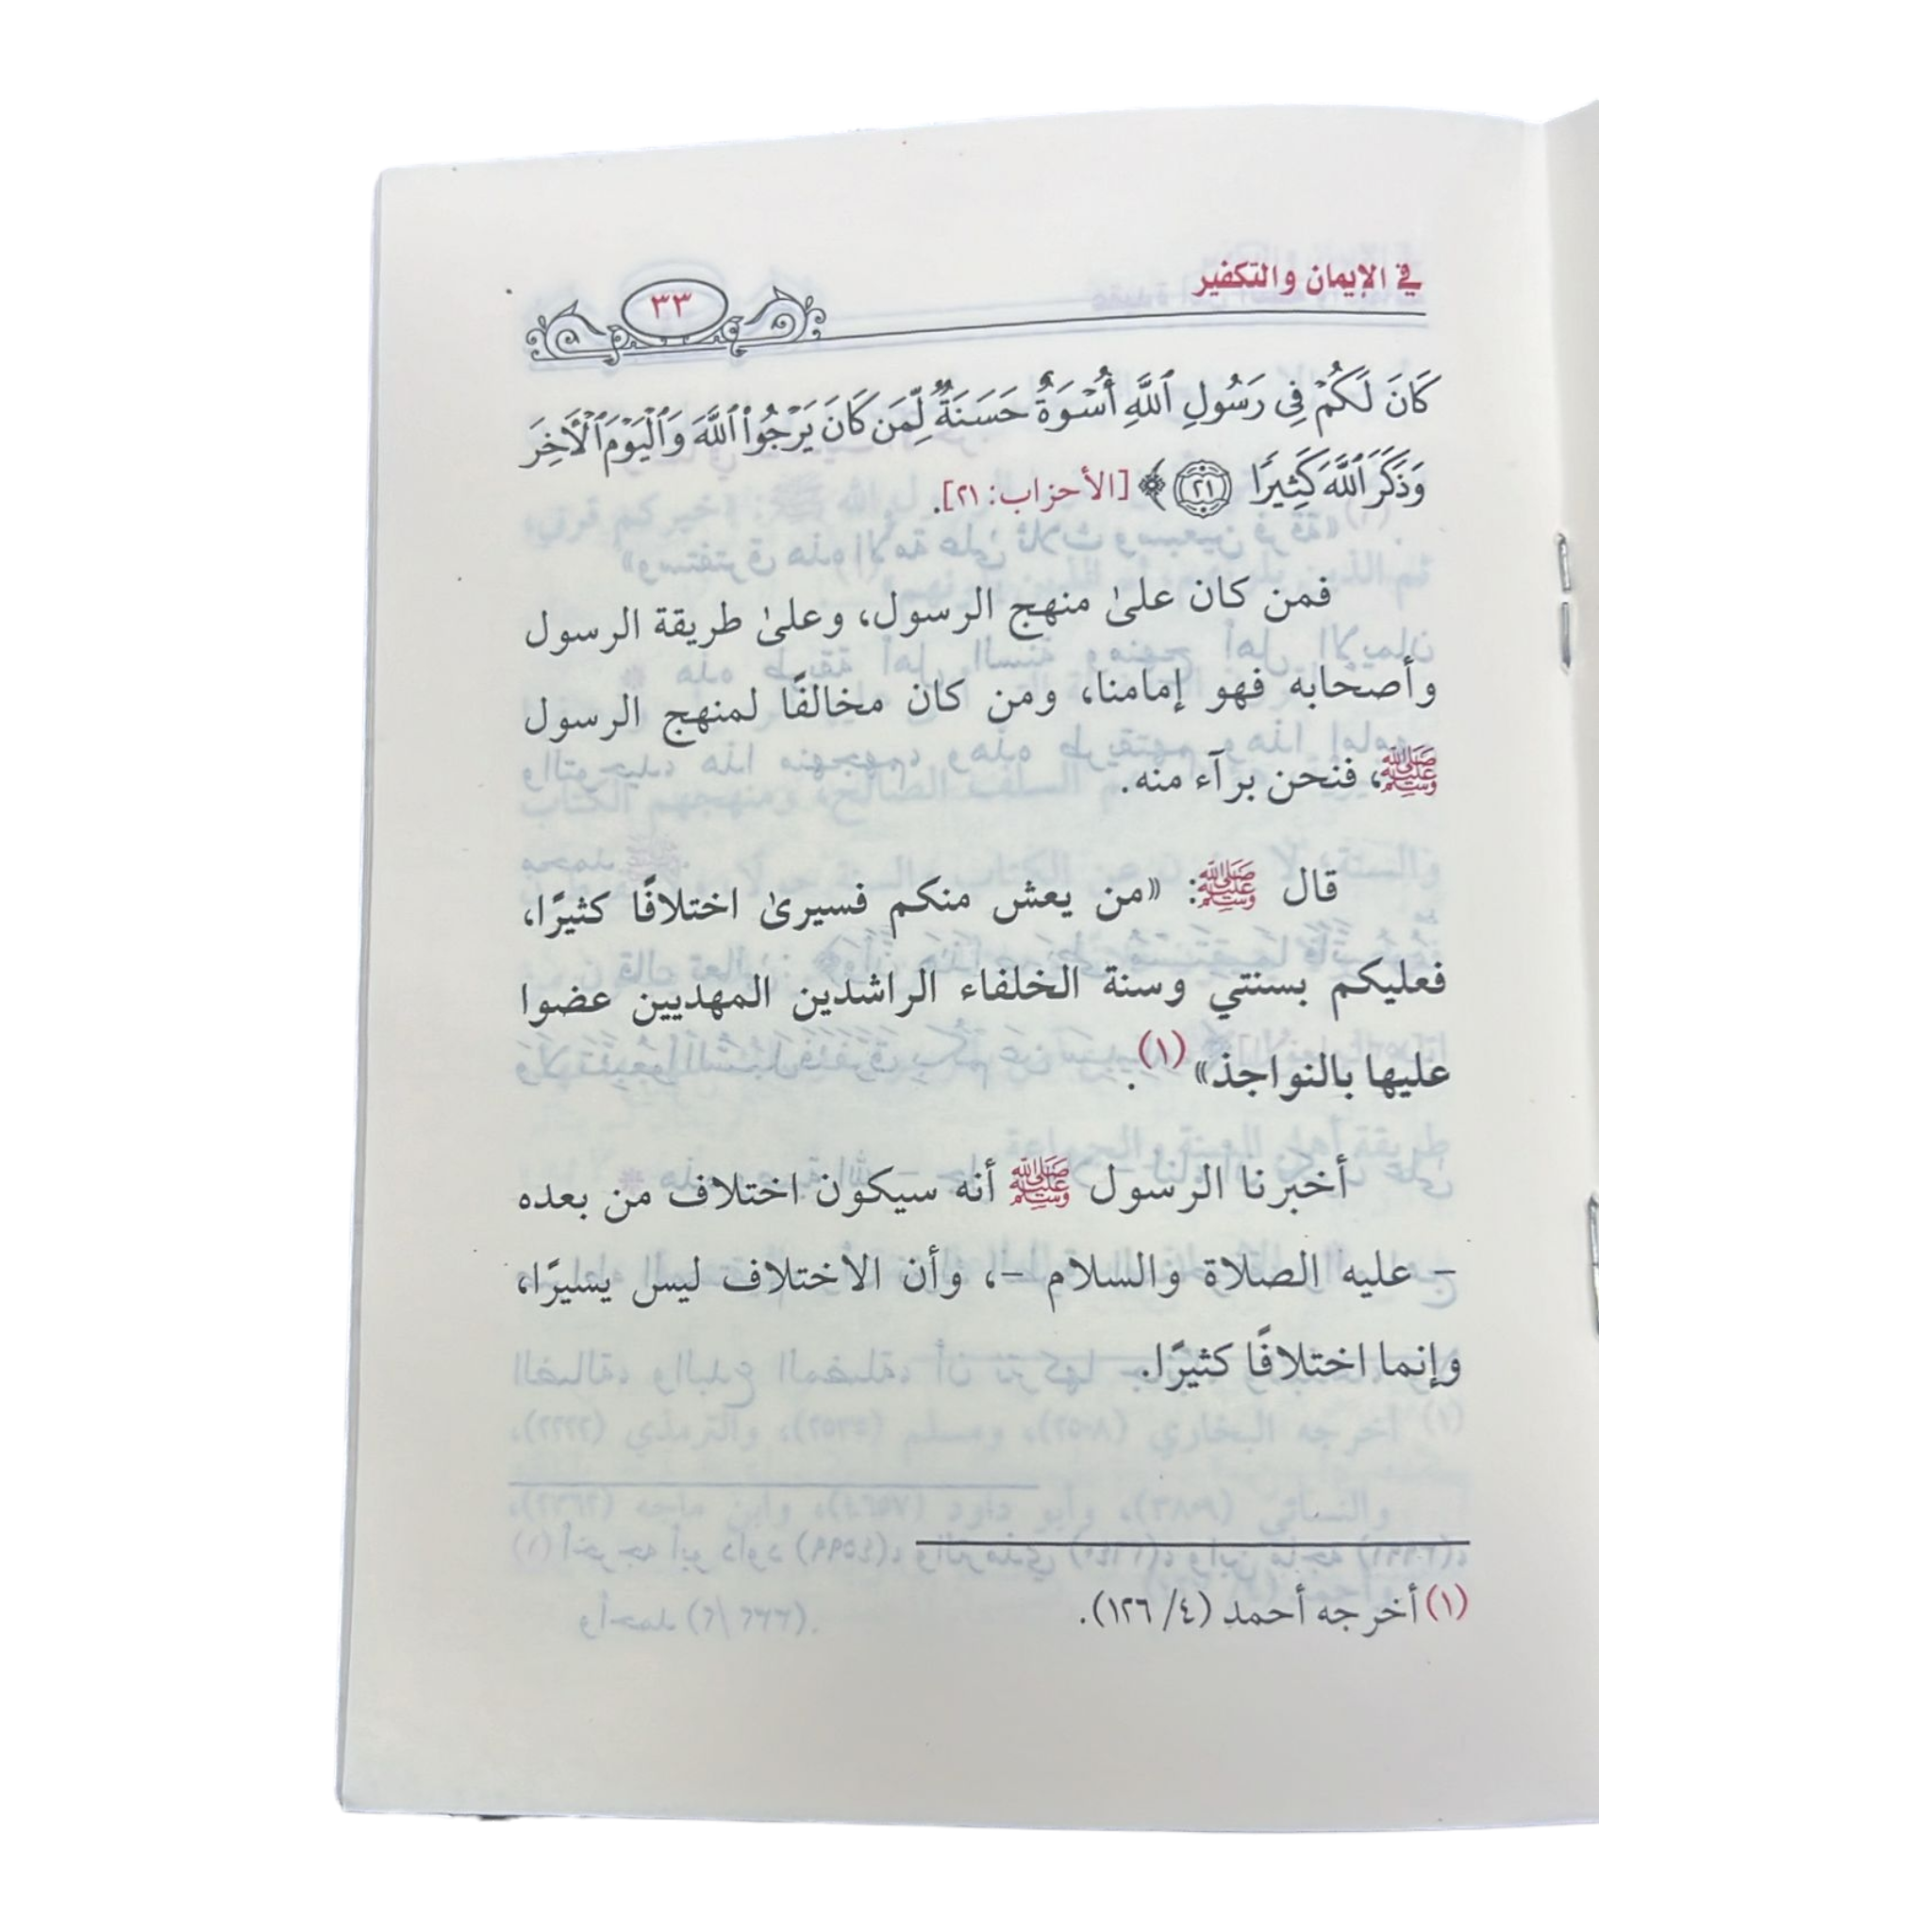 في الإيمان والتكفير
٣٣
كَانَ لَكُمْ فِى رَسُولِ ٱللَّهِ أُسْوَةٌ حَسَنَةٌ لِّمَن كَانَ يَرْجُوا۟ ٱللَّهَ وَٱلْيَوْمَ ٱلْـَٔاخِرَ
وَذَكَرَ ٱللَّهَ كَثِيرًا ٢١ ﴾ [الأحزاب: ٢١].
فمن كان علىٰ منهج الرسول، وعلىٰ طريقة الرسول
وأصحابه فهو إمامنا، ومن كان مخالفًا لمنهج الرسول
ﷺ، فنحن برآء منه.
قال ﷺ: «من يعش منكم فسيرىٰ اختلافًا كثيرًا،
فعليكم بسنتي وسنة الخلفاء الراشدين المهديين عضوا
عليها بالنواجذ» (١).
أخبرنا الرسول ﷺ أنه سيكون اختلاف من بعده
- عليه الصلاة والسلام -، وأن الاختلاف ليس يسيرًا،
وإنما اختلافًا كثيرًا.
(١) أخرجه أحمد (٤/ ١٢٦).